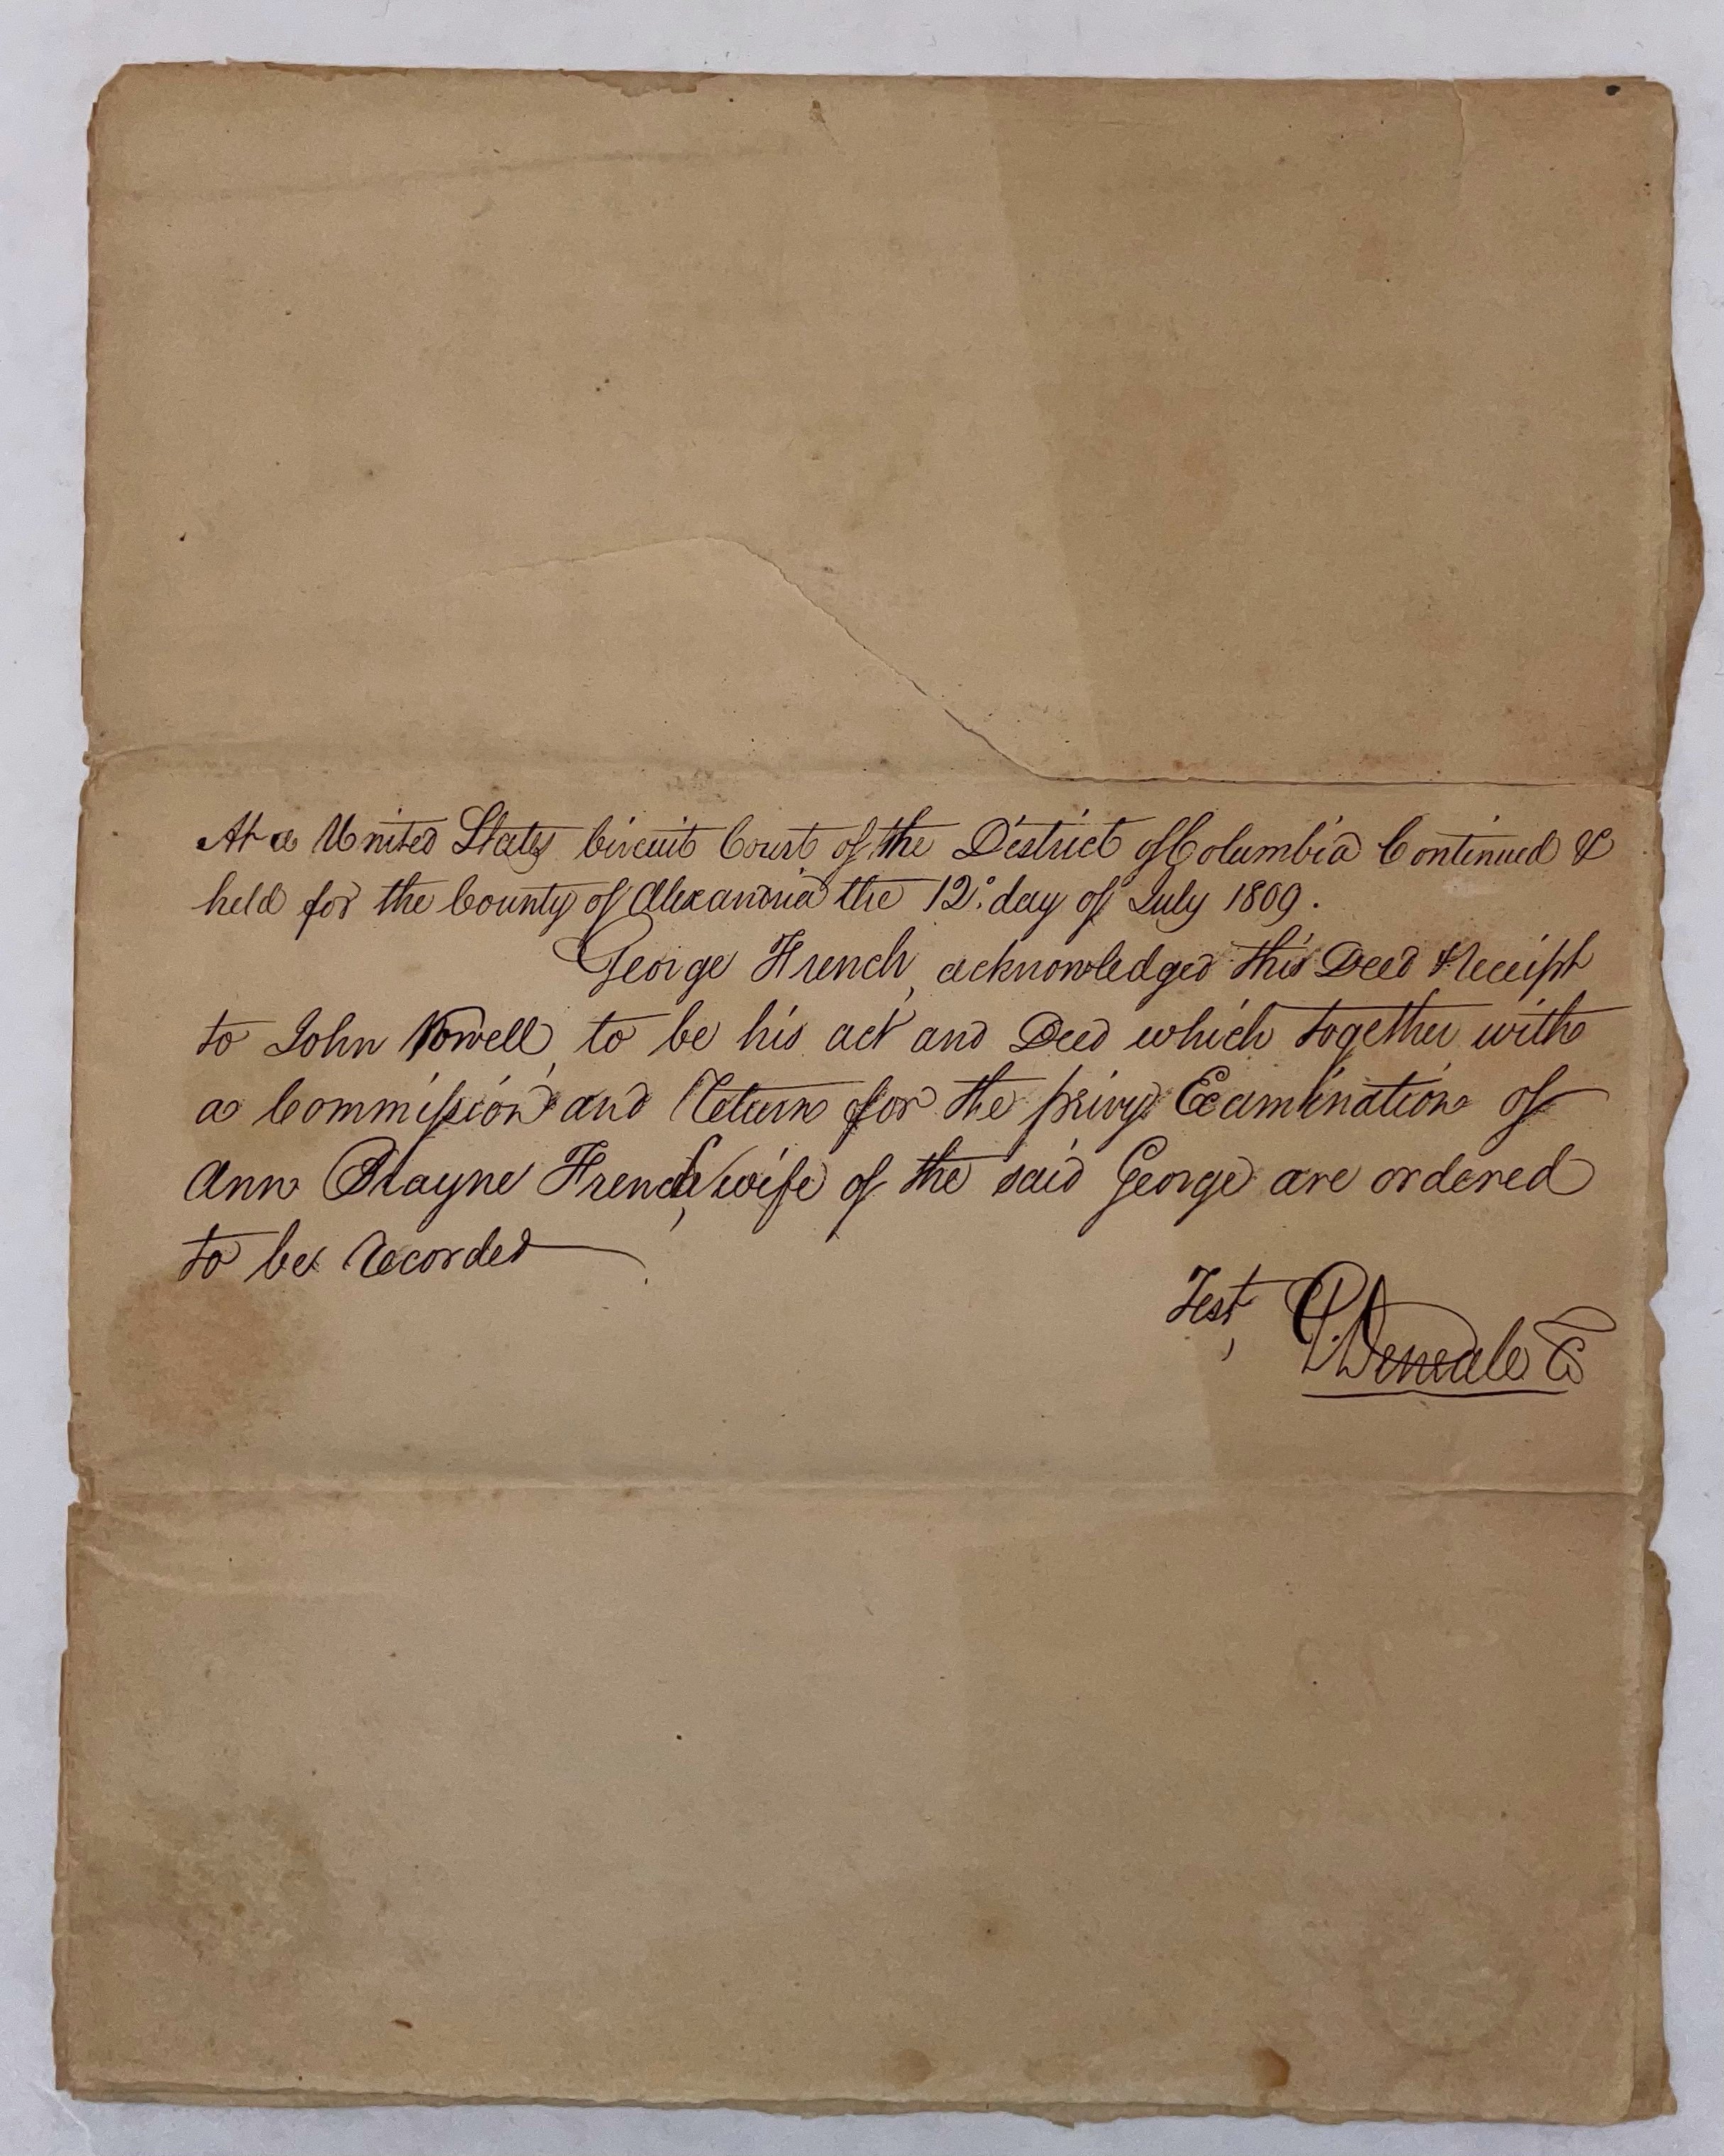 At a United States Circuit Court of the District of Columbia Continued &
held for the County of Alexandria the 12.° day of July 1809.
George French, acknowledged this Deed & Receipt
to John Vowell, to be his act and Deed which together with
a Commission and Return for the privy Examination of
Ann Brayne French, wife of the said George are ordered
to be recorded
Test,
G. Deneale Cc